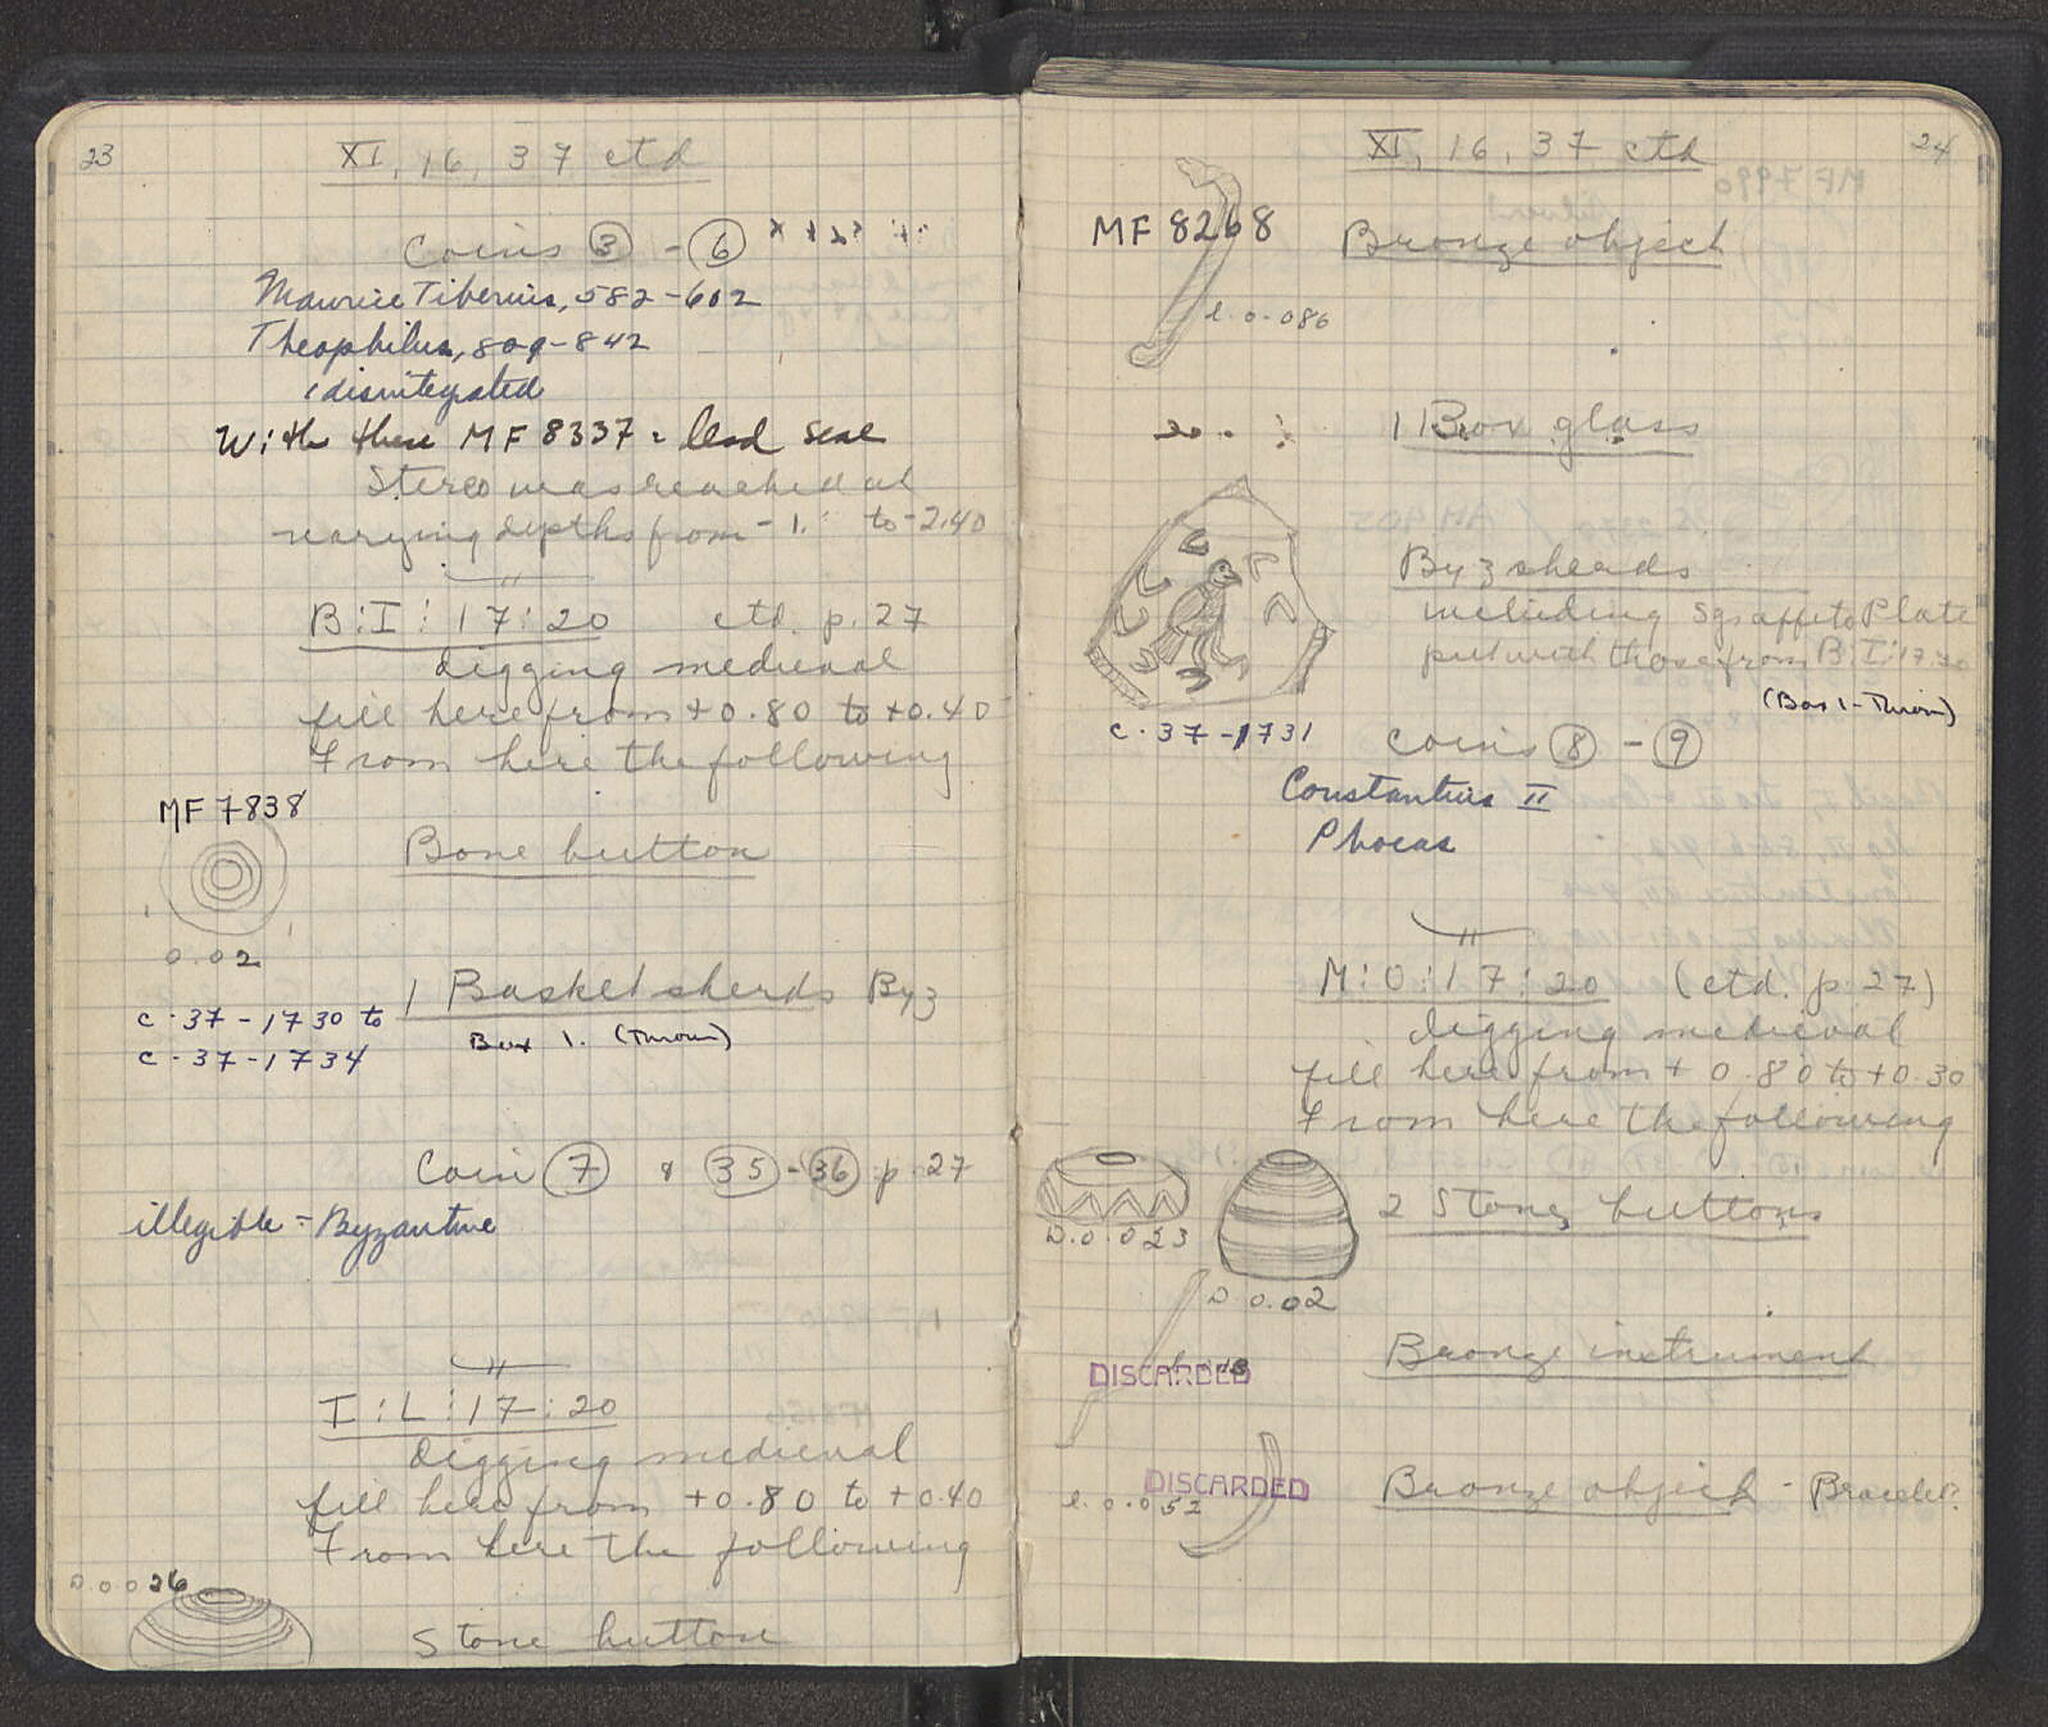 23
XI, 16, 37 ctd
Coins 3 - 6
Maurice Tiberius, 582-602
Theophilus, 809-842
1 disintegrated
With these MF 8337 = lead seal
Stereo was reached at
varying depths from -1. to -2.40
B:I:17:20 ctd. p. 27
digging medieval
fill here from +0.80 to +0.40
From here the following
MF 7838
Bone button
0.02
1 Basket sherds Byz
c.37-1730 to
c.37-1734
Box 1. (Thrown)
Coin 7 & 35 - 36 p. 27
illegible - Byzantine
I:L:17:20
digging medieval
fill here from +0.80 to +0.40
From here the following
D. 0.026
Stone button
24
XI, 16, 37 ctd
MF 8268
Bronze object
l. 0.086
1 Box glass
Byz sherds
including Sgraffito Plate
put with those from B:I:17:20
(Box 1-Thrown)
c.37-1731
Coins 8 - 9
Constantius II
Phocas
M:O:17:20 (ctd. p. 27)
digging medieval
fill here from +0.80 to +0.30
From here the following
2 Stone buttons
D. 0.023
D 0.02
Bronze instrument
DISCARDED
DISCARDED
Bronze object - Bracelet?
l. 0.052